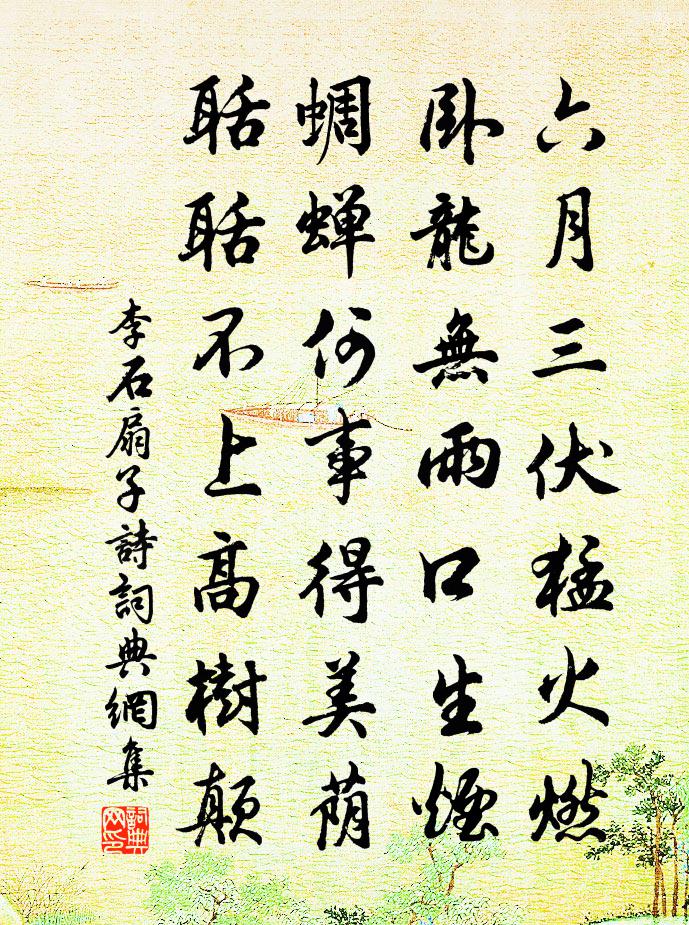 六月三伏猛火燃
卧龍無雨口生煙
蜩蝉何事得美荫
聒聒不上高樹颠
李石扇子詩詞典網集
詞典網印